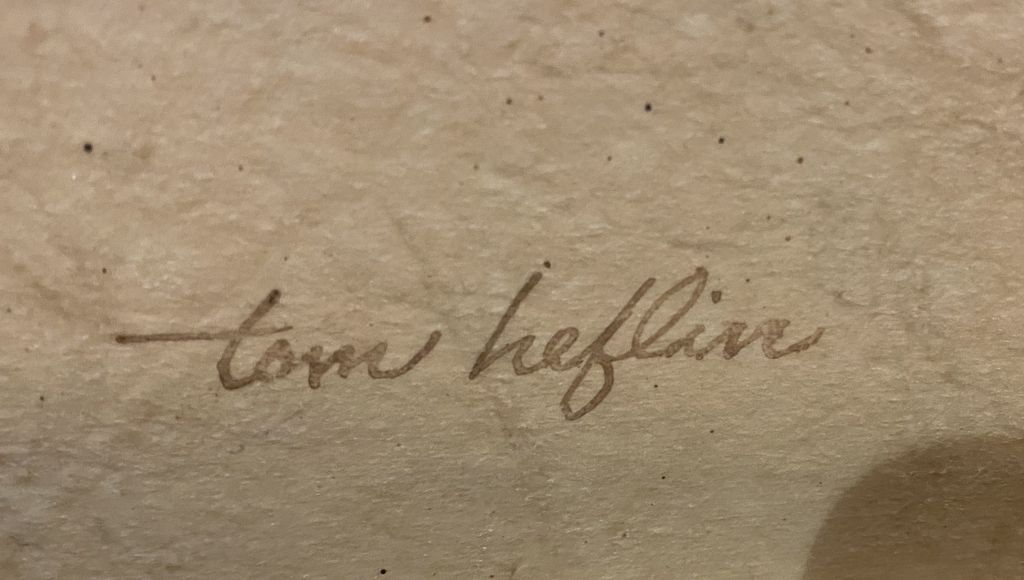 tom heflin